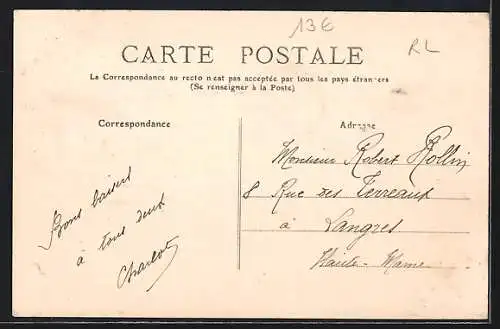 13€
RL
CARTE POSTALE
La Correspondance au recto n'est pas acceptée par tous les pays étrangers
(Se renseigner à la Poste)
Correspondance
Bons baisers
à tous deux
Charlot
Adresse
Monsieur Robert Rollin
8 Rue des Terreaux
à Langres
Haute-Marne